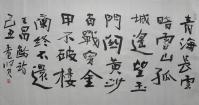 青海長雲
暗雪山孤
城遥望玉
門關黄沙
百戰穿金
甲不破樓
蘭終不還
王昌齡詩
己丑